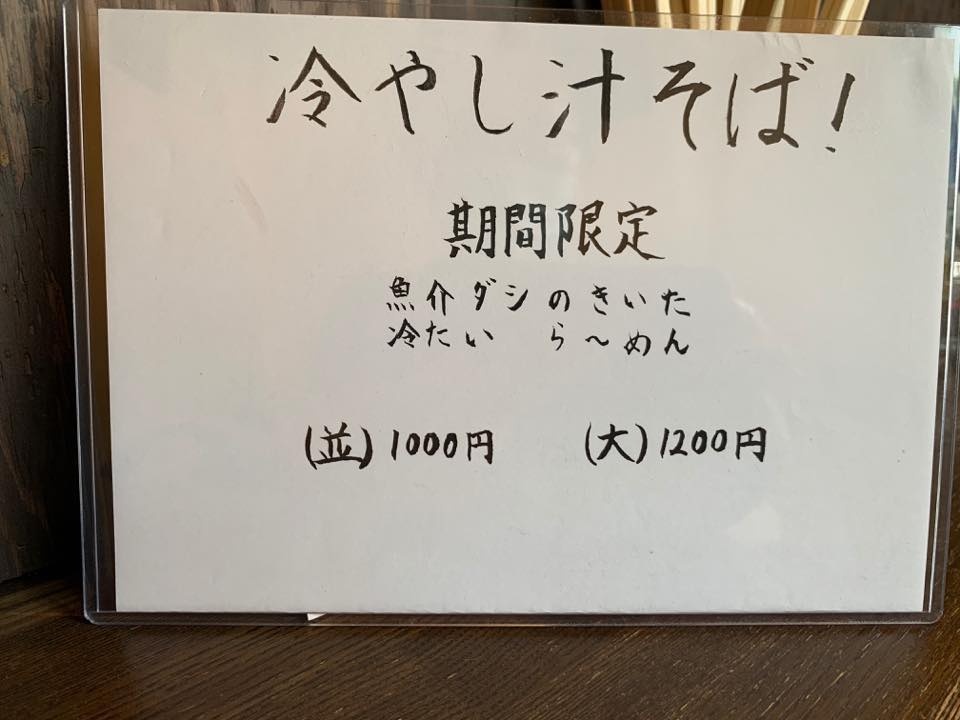 冷やし汁そば!
期間限定
魚介ダシのきいた
冷たい ら〜めん
(並) 1000円 (大) 1200円